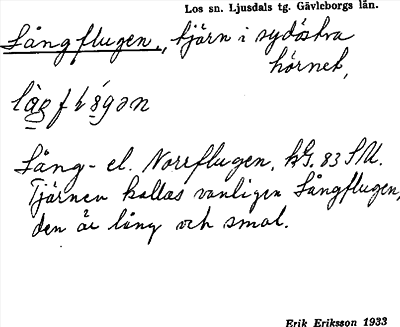 Los sn. Ljusdals tg. Gävleborgs län.
Långflugen, tjärn i sydöstra
hörnet,
Lång- el. Norrflugen. 83 SU.
Tjärnen kallas vanligen Långflugen,
den är lång och smal.
Erik Eriksson 1933